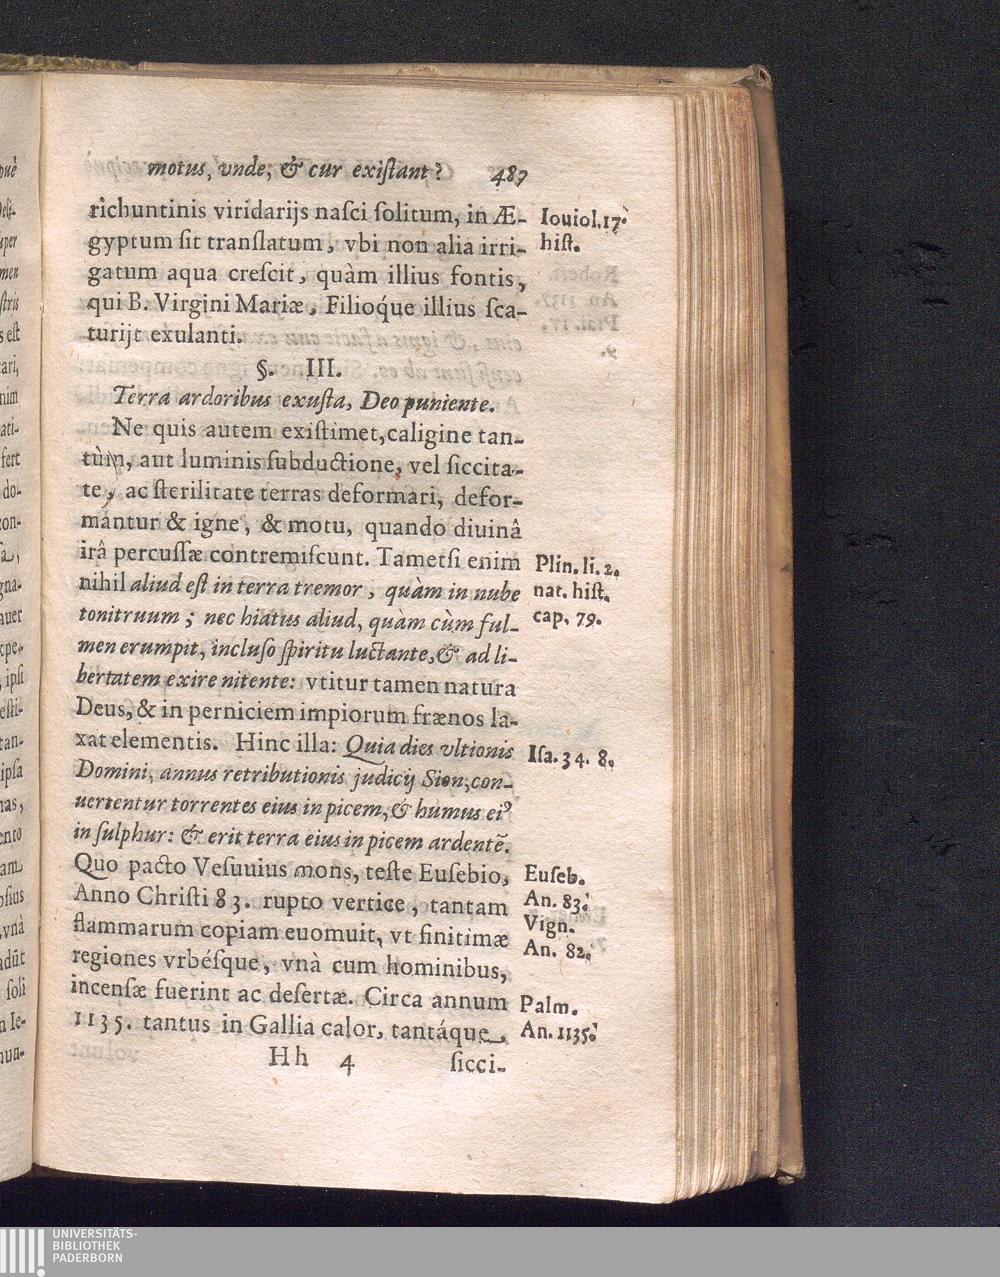 motus, vnde, & cur exiſtant? 487
richuntinis viridarijs naſci ſolitum, in Æ-
gyptum ſit tranſlatum, vbi non alia irri-
gatum aqua creſcit, quàm illius fontis,
qui B. Virgini Mariæ, Filioq́ue illius ſca-
turijt exulanti.
Iouiol.17.
hiſt.
§. III.
Terra ardoribus exuſta, Deo puniente.
Ne quis autem exiſtimet, caligine tan-
tùm, aut luminis ſubductione, vel ſiccita-
te, ac ſterilitate terras deformari, defor-
mantur & igne, & motu, quando diuinâ
irâ percuſſæ contremiſcunt. Tametſi enim
nihil aliud eſt in terra tremor, quàm in nube
tonitruum; nec hiatus aliud, quàm cùm ful-
men erumpit, incluſo ſpiritu luctante, & ad li-
bertatem exire nitente: vtitur tamen natura
Deus, & in perniciem impiorum frænos la-
xat elementis. Hinc illa: Quia dies vltionis
Domini, annus retributionis judicij Sion, con-
uertentur torrentes eius in picem, & humus ei⁹
in ſulphur: & erit terra eius in picem ardentẽ.
Quo pacto Veſuuius mons, teſte Euſebio,
Anno Chriſti 83. rupto vertice, tantam
flammarum copiam euomuit, vt finitimæ
regiones vrbéſque, vnà cum hominibus,
incenſæ fuerint ac deſertæ. Circa annum
1135. tantus in Gallia calor, tantáque
Plin. li. 2.
nat. hiſt.
cap. 79.
Iſa. 34. 8.
Euſeb.
An. 83.
Vign.
An. 82.
Palm.
An. 1135.
Hh 4 ſicci-
UNIVERSITÄTS-
BIBLIOTHEK
PADERBORN